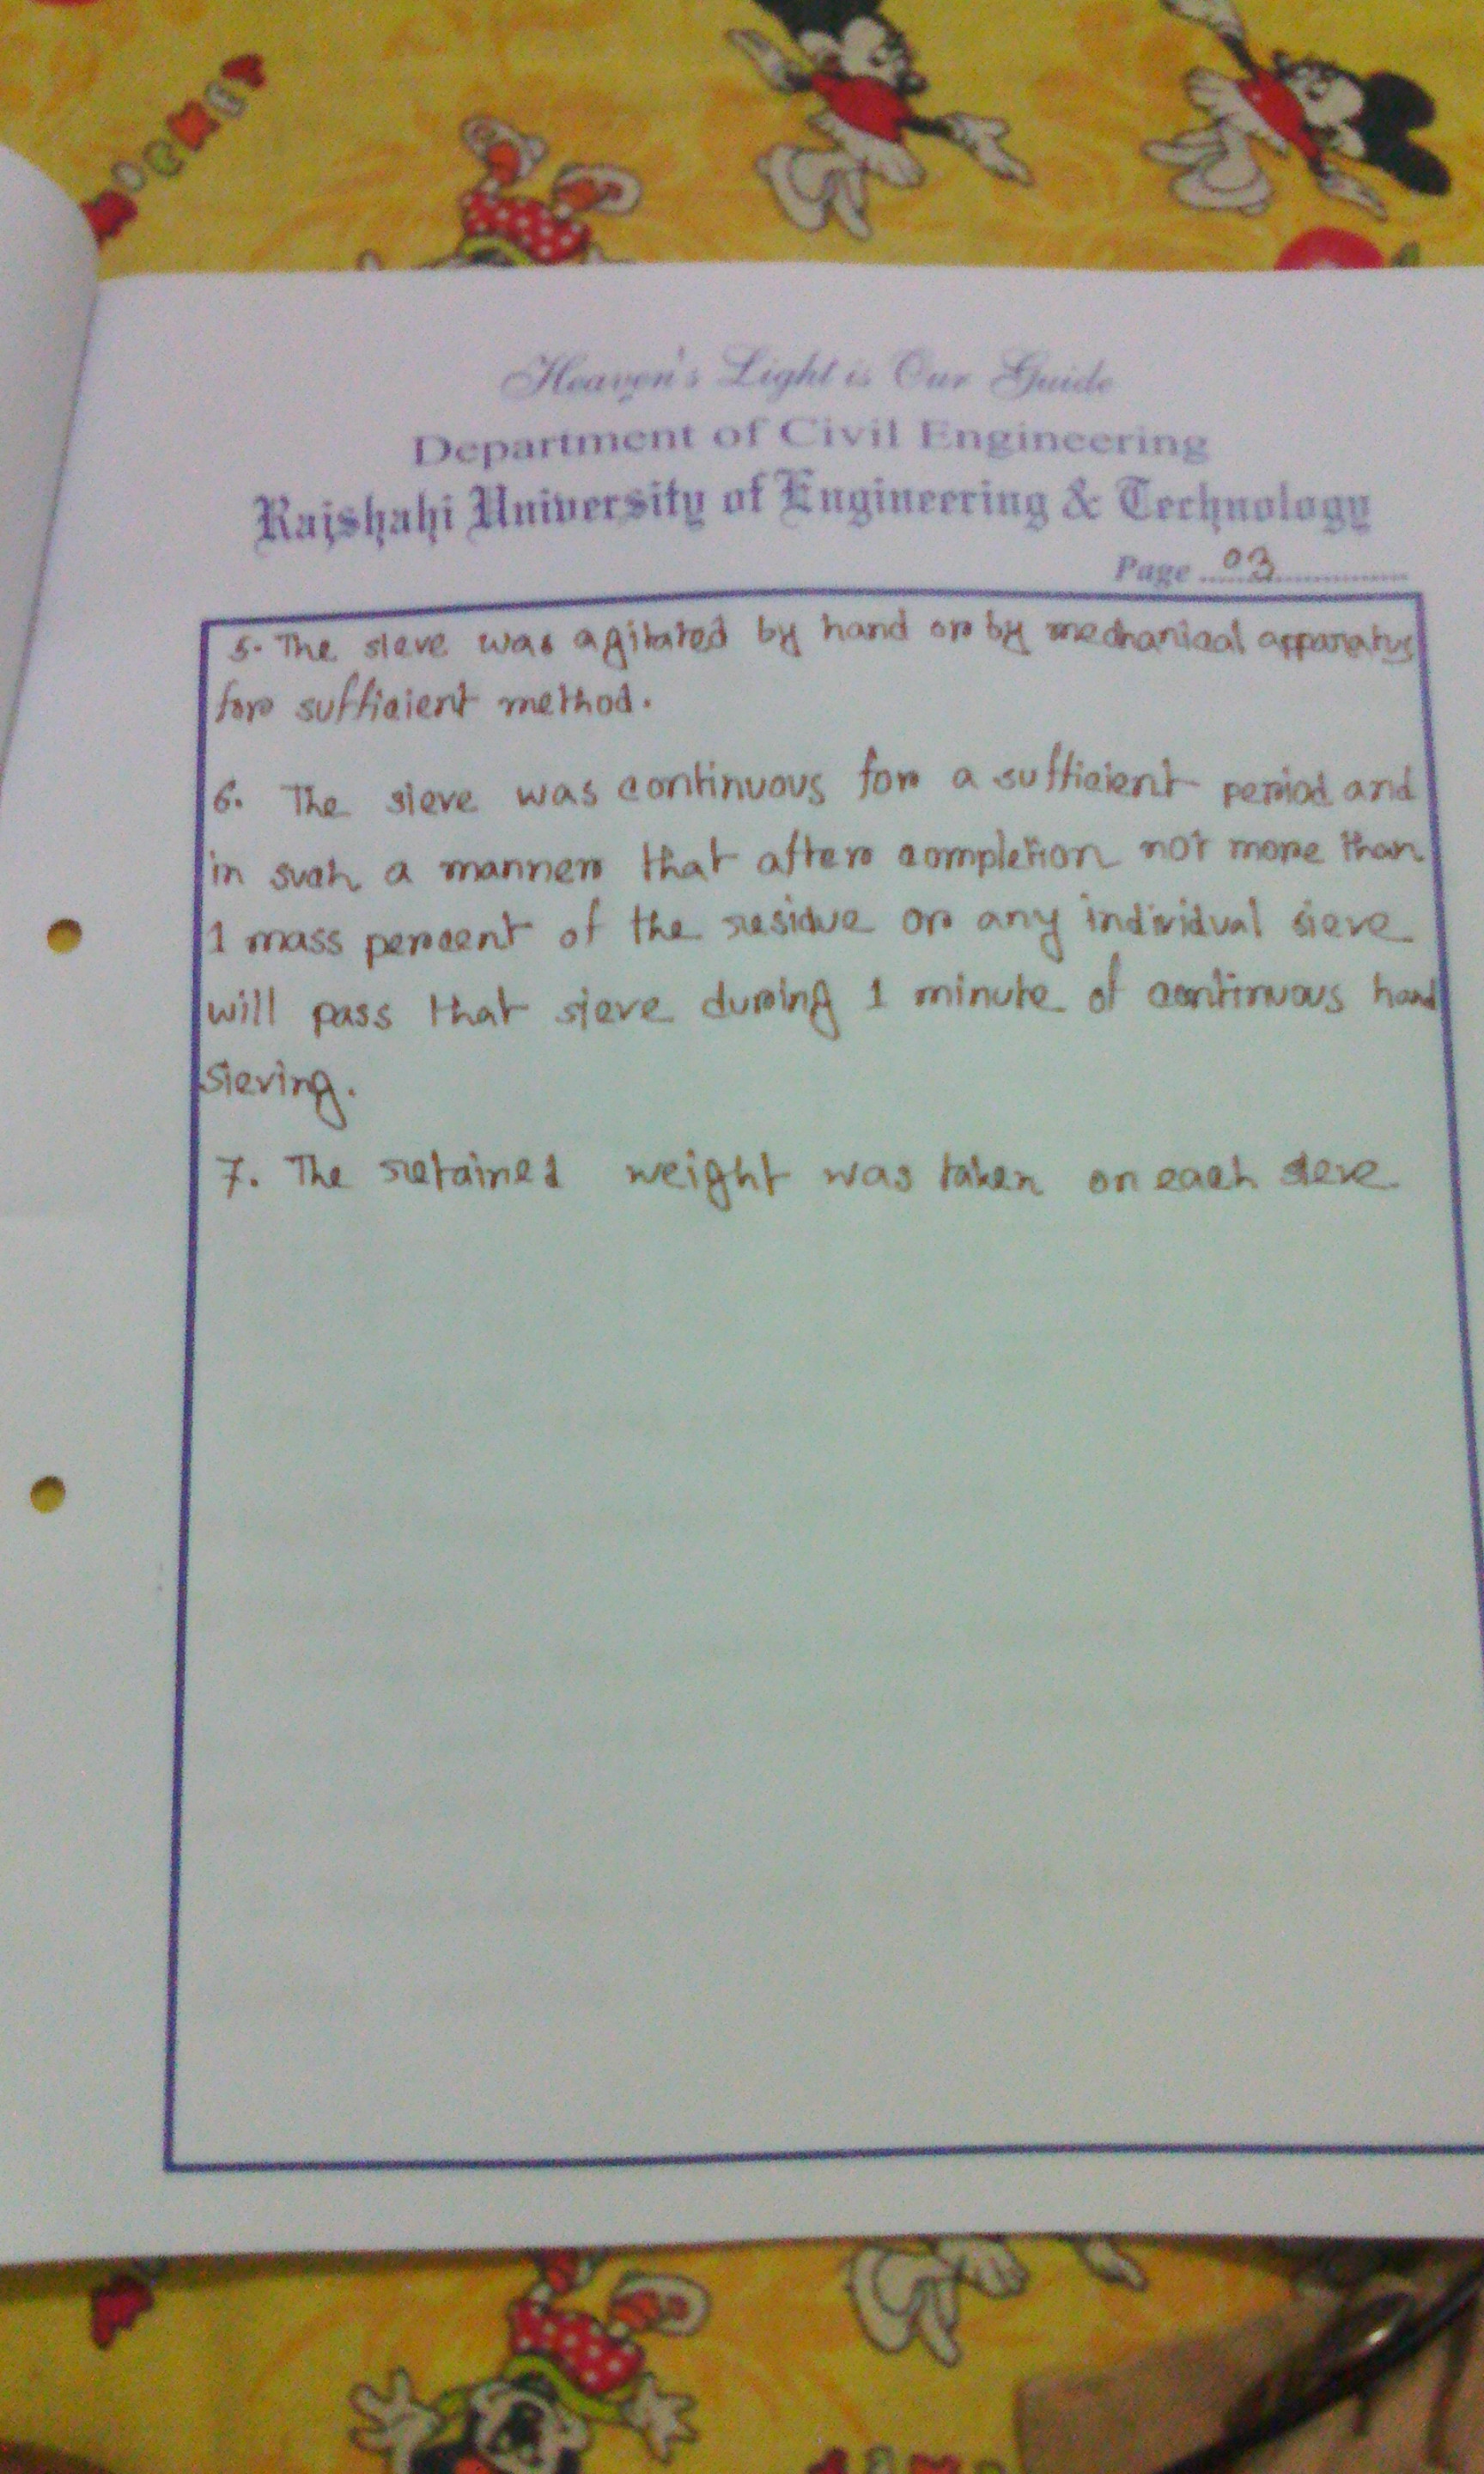 Heaven's Light is Our Guide
Department of Civil Engineering
Rajshahi University of Engineering & Technology
Page ..03..............
5. The sieve was agitated by hand or by mechanical apparatus
for sufficient method.
6. The sieve was continuous for a sufficient period and
in such a manner that after completion not more than
1 mass percent of the residue on any individual sieve
will pass that sieve during 1 minute of continuous hand
sieving.
7. The retained weight was taken on each sieve